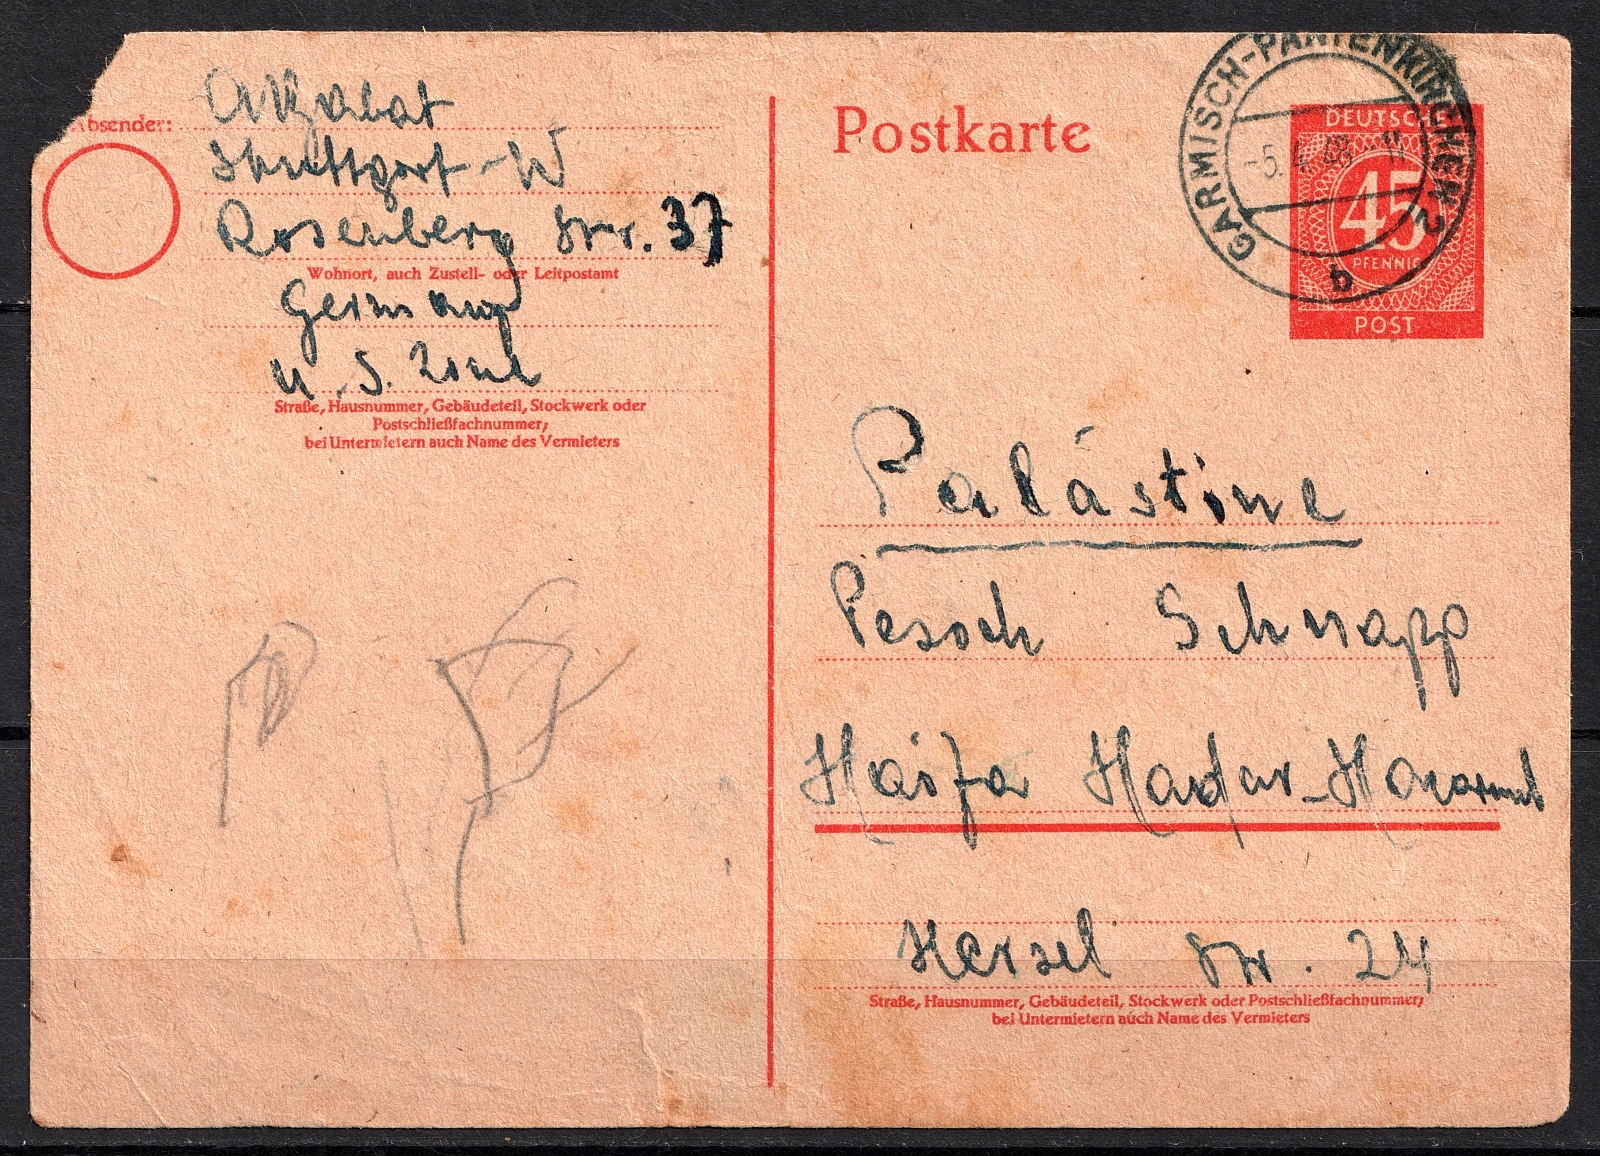 Absender:
Stuttgart-W
Rosenberg Str. 37
Wohnort, auch Zustell- oder Leitpostamt
Germany
U.S. Zone
Straße, Hausnummer, Gebäudeteil, Stockwerk oder
Postschließfachnummer;
bei Untermietern auch Name des Vermieters
Postkarte
GARMISCH-PARTENKIRCHEN 2
-5. 4. 48 - 11
b
DEUTSCHE
45
PFENNIG
POST
Palästine
Pesach Schnapp
Haifa Hadar-Hacarmel
Herzel Str. 24
Straße, Hausnummer, Gebäudeteil, Stockwerk oder Postschließfachnummer;
bei Untermietern auch Name des Vermieters